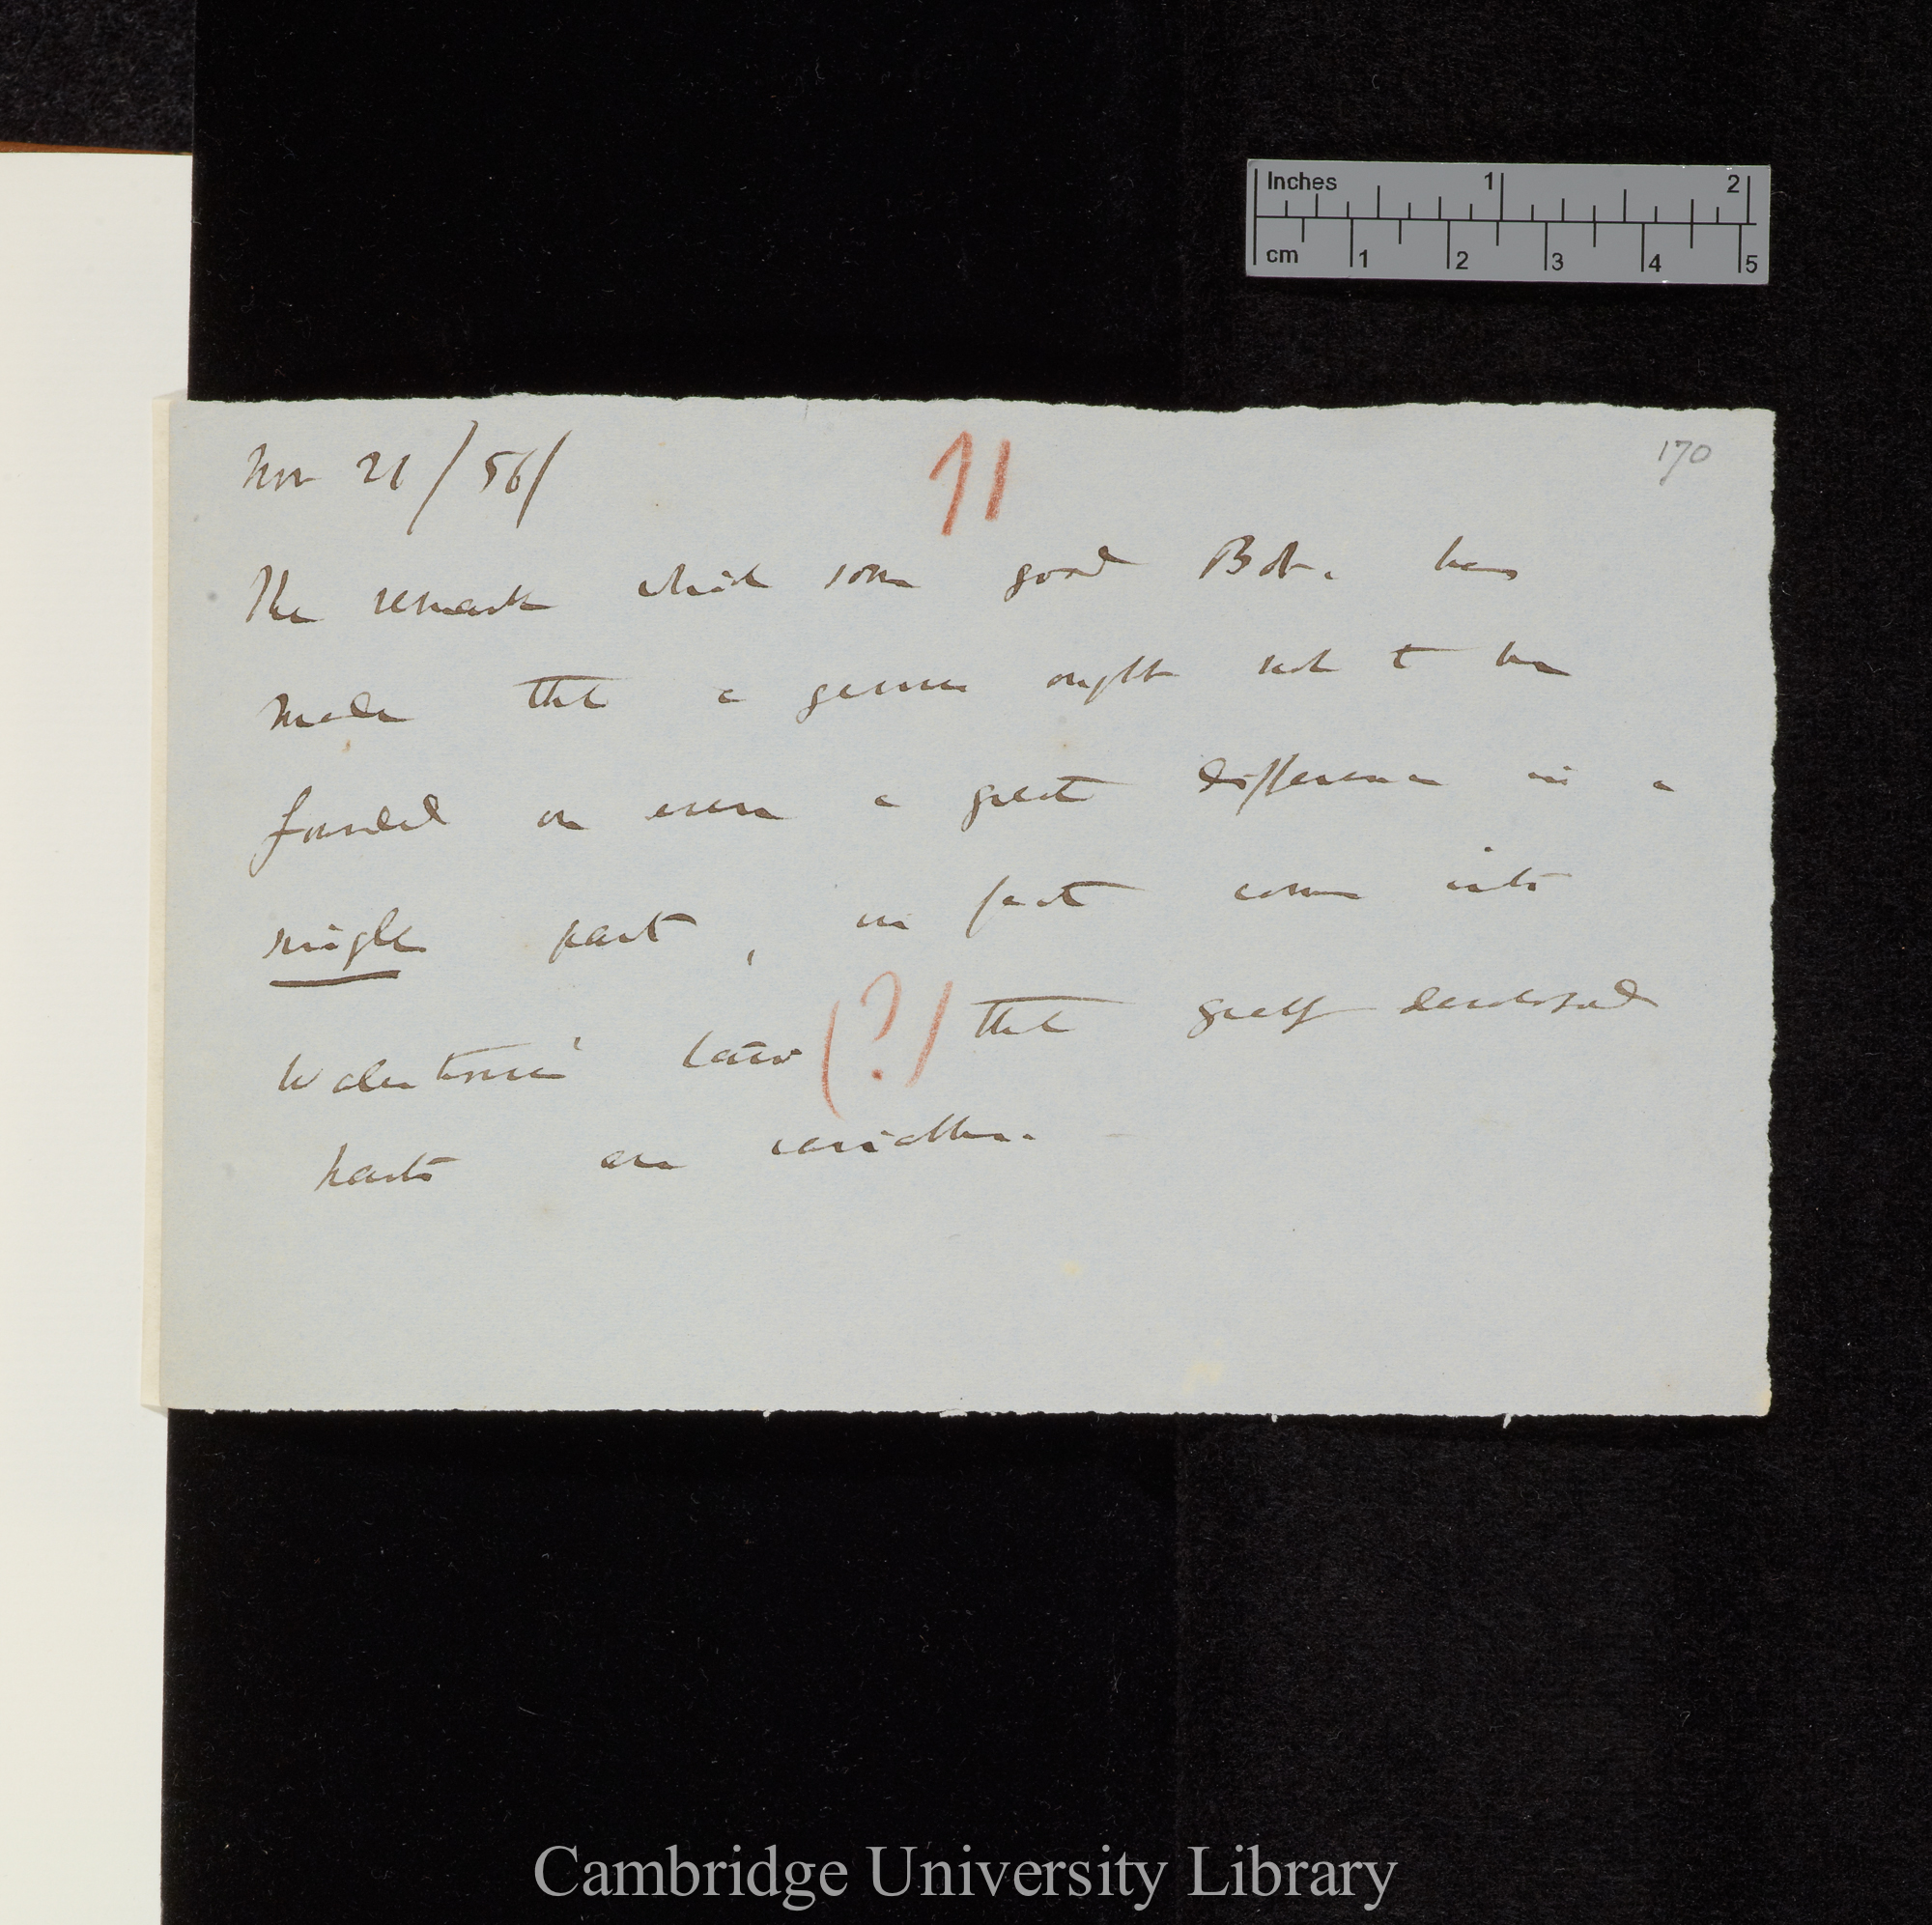 Inches 1 2
cm 1 2 3 4 5
170
Nov 21/56/
11
The remark which some good Bot. has
made that a genus ought not to be
founded on even a great difference in a
single part, in fact come into
Waterhouse' law (?) that greatly developed
parts are variable.
Cambridge University Library